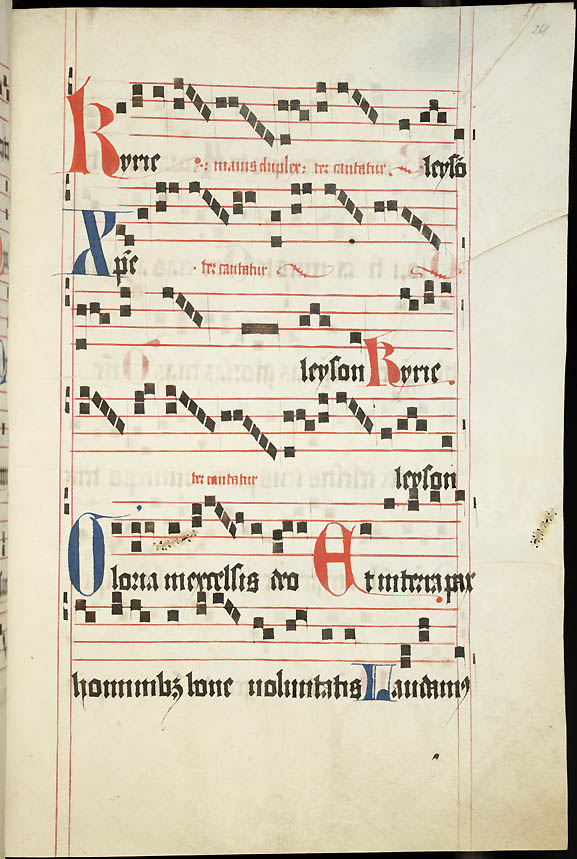 Kyrie maius duplex ter cantatur leyso̅
Xp̅e ter cantatur
leyson Kyrie.
ter cantatur leyson
Gloria in excelsis deo Et in terra pax
hominibꝫ bone voluntatis Laudamꝰ